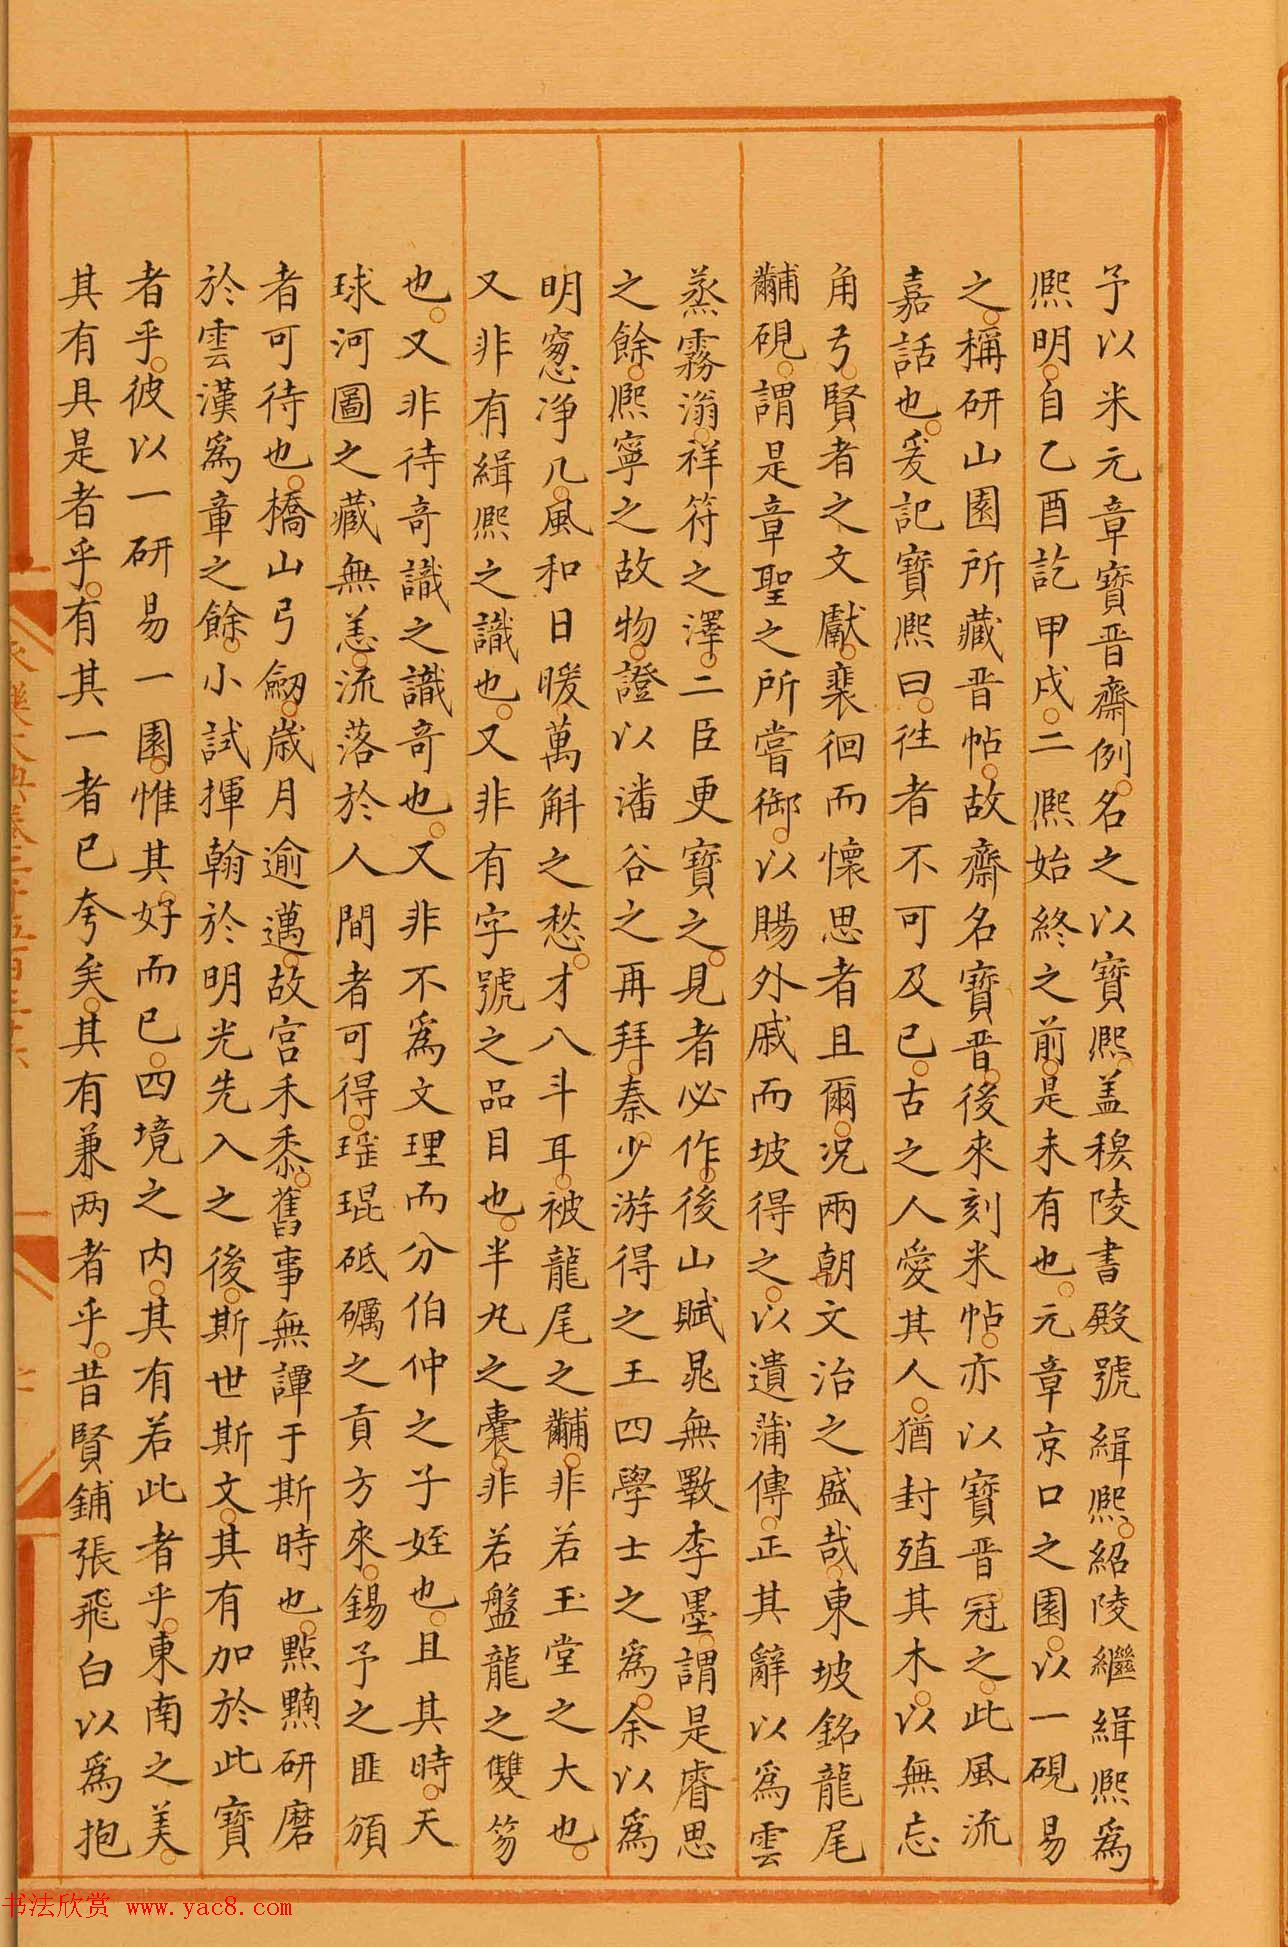 予以米元章寶晉齋例。名之以寶熈。盖穆陵書殿號緝熈。紹陵繼緝熈爲
熈明。自乙酉訖甲戌。二熈始終之前。是未有也。元章京口之園。以一硯易
之。稱研山園所藏晋帖。故齋名寶晋。後來刻米帖。亦以寶晋冠之。此風流
嘉話也。爰記寶熈曰。徃者不可及已。古之人愛其人。猶封殖其木。以無忘
角弓。賢者之文獻。裴徊而懷思者且爾。况兩朝文治之盛哉。東坡銘龍尾
黼硯。謂是章聖之所嘗御。以賜外戚而坡得之。以遺蒲傳。正其辭以爲雲
蒸霧滃。祥符之澤。二臣更寶之。見者必作。後山賦晁無斁李墨。謂是睿思
之餘。熈寧之故物。證以潘谷之再拜。秦少游得之王四學士之爲。余以爲
明窓净几。風和日暖。萬斛之愁。才八斗耳。被龍尾之黼。非若玉堂之大也。
又非有緝熈之識也。又非有字號之品目也。半丸之囊。非若盤龍之雙笏
也。又非待竒識之識竒也。又非不爲文理而分伯仲之子姪也。且其時。天
球河圖之藏無恙。流落於人間者可得。瑶琨砥礪之貢方來。錫予之匪頒
者可待也。橋山弓劒。歲月逾邁。故宫禾黍。舊事無譚于斯時也。點黵研磨
於雲漢爲章之餘。小試揮翰於明光先入之後。斯世斯文。其有加於此寶
者乎。彼以一研易一園。惟其好而已。四境之内。其有若此者乎。東南之美。
其有具是者乎。有其一者已夸矣。其有兼两者乎。昔賢鋪張飛白以爲抱
书法欣赏 www.yac8.com